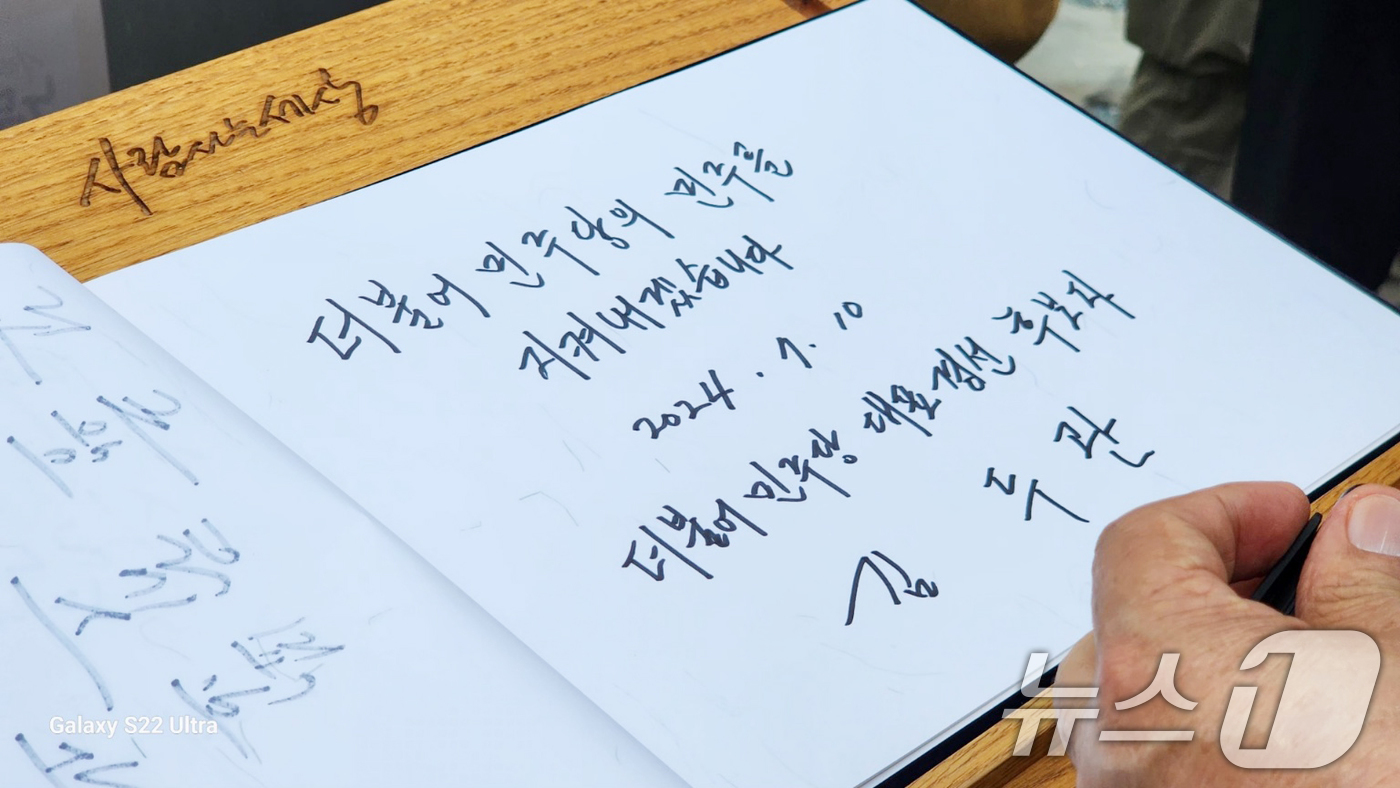 사람사는세상
더불어 민주당의 민주를
지켜내겠습니다
2024. 7. 10
더불어 민주당 대표 경선 후보자
김 두 관
Galaxy S22 Ultra
뉴스1